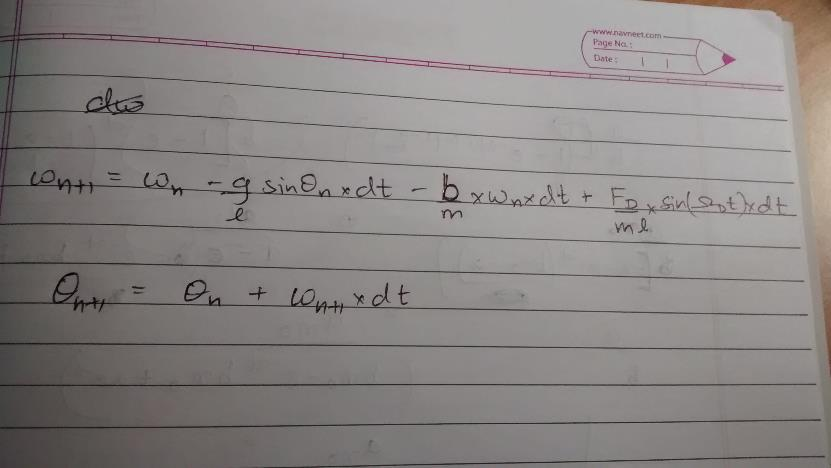 www.navneet.com
Page No. :
Date :
dω
ω_{n+1} = ω_n - g/l sinθ_n × dt - b/m × ω_n × dt + F_D/ml × sin(Ω_D t) × dt
θ_{n+1} = θ_n + ω_{n+1} × dt